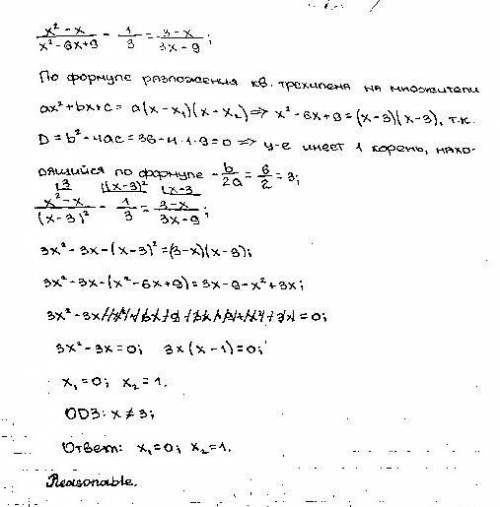 (x² - x)/(x² - 6x + 9) - 1/3 = (3 - x)/(3x - 9);
По формуле разложения кв. трехчлена на множители
ax² + bx + c = a(x - x₁)(x - x₂) ⇒ x² - 6x + 9 = (x - 3)(x - 3), т.к.
D = b² - 4ac = 36 - 4·1·9 = 0 ⇒ у-е имеет 1 корень, нахо-
дящийся по формуле - b/2a = 6/2 = 3;
⌊3 ⌊(x-3)² ⌊x-3
(x² - x)/(x - 3)² - 1/3 = (3 - x)/(3x - 9);
3x² - 3x - (x - 3)² = (3 - x)(x - 3);
3x² - 3x - (x² - 6x + 9) = 3x - 9 - x² + 3x;
3x² - 3x = 0;
3x² - 3x = 0; 3x(x - 1) = 0;
x₁ = 0; x₂ = 1.
ОДЗ: x ≠ 3;
Ответ: x₁ = 0; x₂ = 1.
Reasonable.